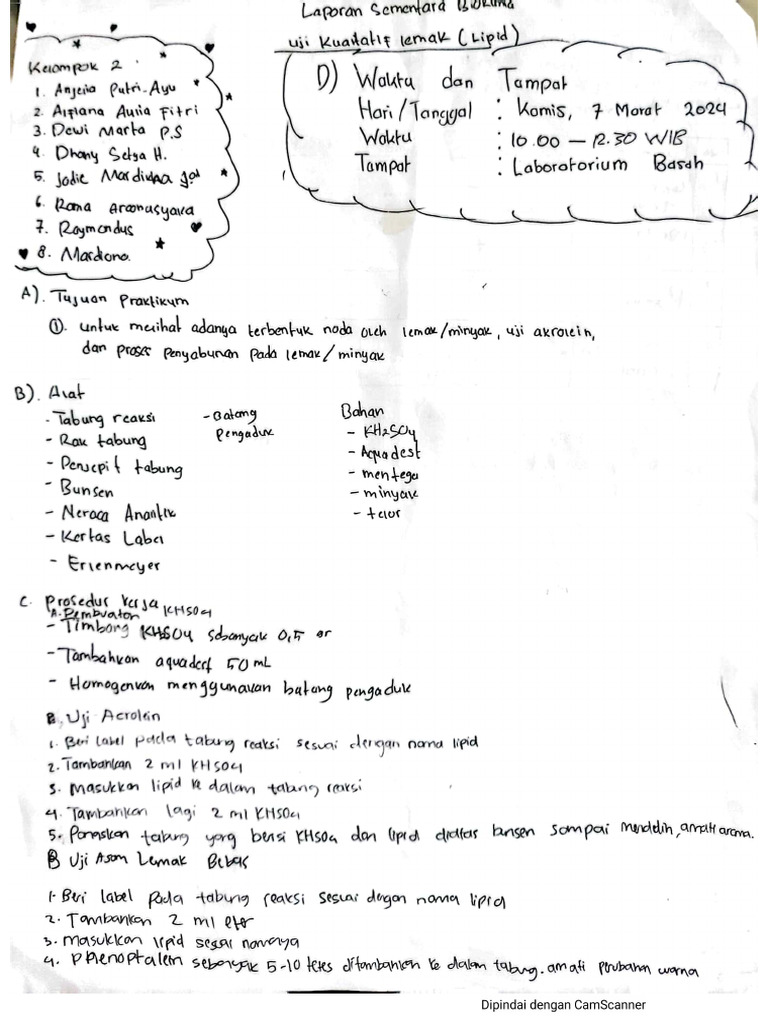 Laporan Sementara
uji Kualitatif lemak (Lipid)
Kelompok 2
1. Anjelia Putri Ayu
2. Alfiana Aulia Fitri
3. Dewi Marta P.S
4. Dhany Setya H.
5. Jodie Mardidha
6. Rana
7. Raymondus
8. Mardiono.
D) Waktu dan Tampat
Hari/Tanggal : Kamis, 7 Marat 2024
Waktu : 10.00 – 12.30 WIB
Tampat : Laboratorium Basah
A). Tujuan Praktikum
①. untuk melihat adanya terbentuk noda oleh lemak/minyak, uji akrolein,
dan proses Penyabunan Pada lemak/minyak
B). Alat
- Tabung reaksi
- Rak tabung
- Penjepit tabung
- Bunsen
- Neraca Analitik
- Kertas Label
- Erlenmeyer
- Batang
Pengaduk
Bahan
- KH2SO4
- Aquadest
- mentega
- minyak
- telor
C. Prosedur Kerja
A. Pembuatan KHSO4
- Timbang KHSO4 sebanyak 0,5 gr
- Tambahkan aquadest 50 mL
- Homogenkan menggunakan batang pengaduk
B. Uji Acrolein
1. Beri label pada tabung reaksi sesuai dengan nama lipid
2. Tambahkan 2 ml KHSO4
3. Masukkan lipid ke dalam tabung reaksi
4. Tambahkan lagi 2 ml KHSO4
5. Panaskan tabung yang berisi KHSO4 dan lipid diatas bunsen sampai mendidih, amati aroma.
B Uji Asam Lemak Bebas
1. Beri label pada tabung reaksi sesuai dengan nama lipid
2. Tambahkan 2 ml eter
3. Masukkan lipid sesuai namanya
4. PHenoptalein sebanyak 5-10 tetes ditambahkan ke dalam tabung. amati perubahan warna
Dipindai dengan CamScanner